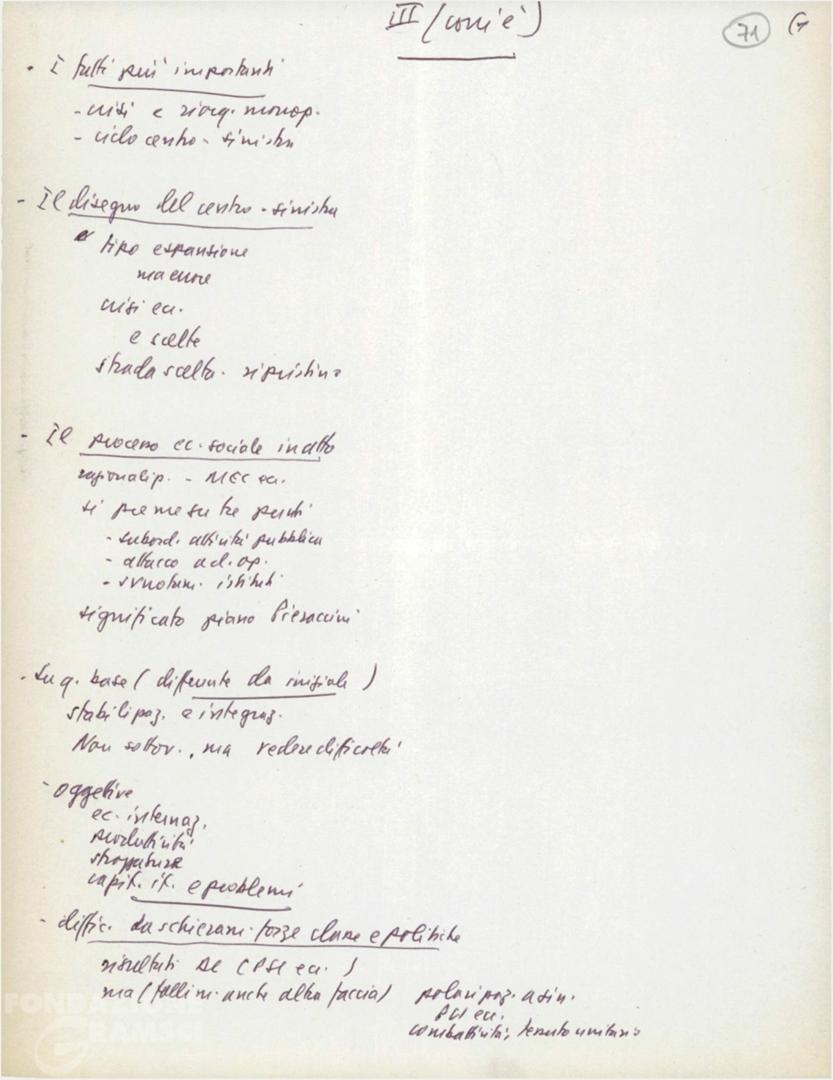 III (com'è)
71
- I fatti più importanti
- crisi e riorg. monop.
- ciclo centro-sinistra
- Il disegno del centro-sinistra
tipo espansione
ma cuore
crisi ec.
e scelte
strada scelta - ripristino
- Il processo ec. sociale in atto
razionalizz. - MEC ec.
si preme su tre punti
- subord. attività pubblica
- attacco ad. op.
- svuotam. istituti
significato piano Pieraccini
- Su q. base (differente da iniziale)
stabilizzaz. e integraz.
Non sottov., ma vedere difficoltà
- oggettive
ec. internaz.
produttività
strozzature
capit. it. e problemi
- diffic. da schieram. forze classe e politiche
risultati DC (PSI ec.)
ma (fallim. anche altra faccia) polarizzaz. a sin.
PCI ec.
combattività, tessuto unitario
FONDAZIONE
GRAMSCI